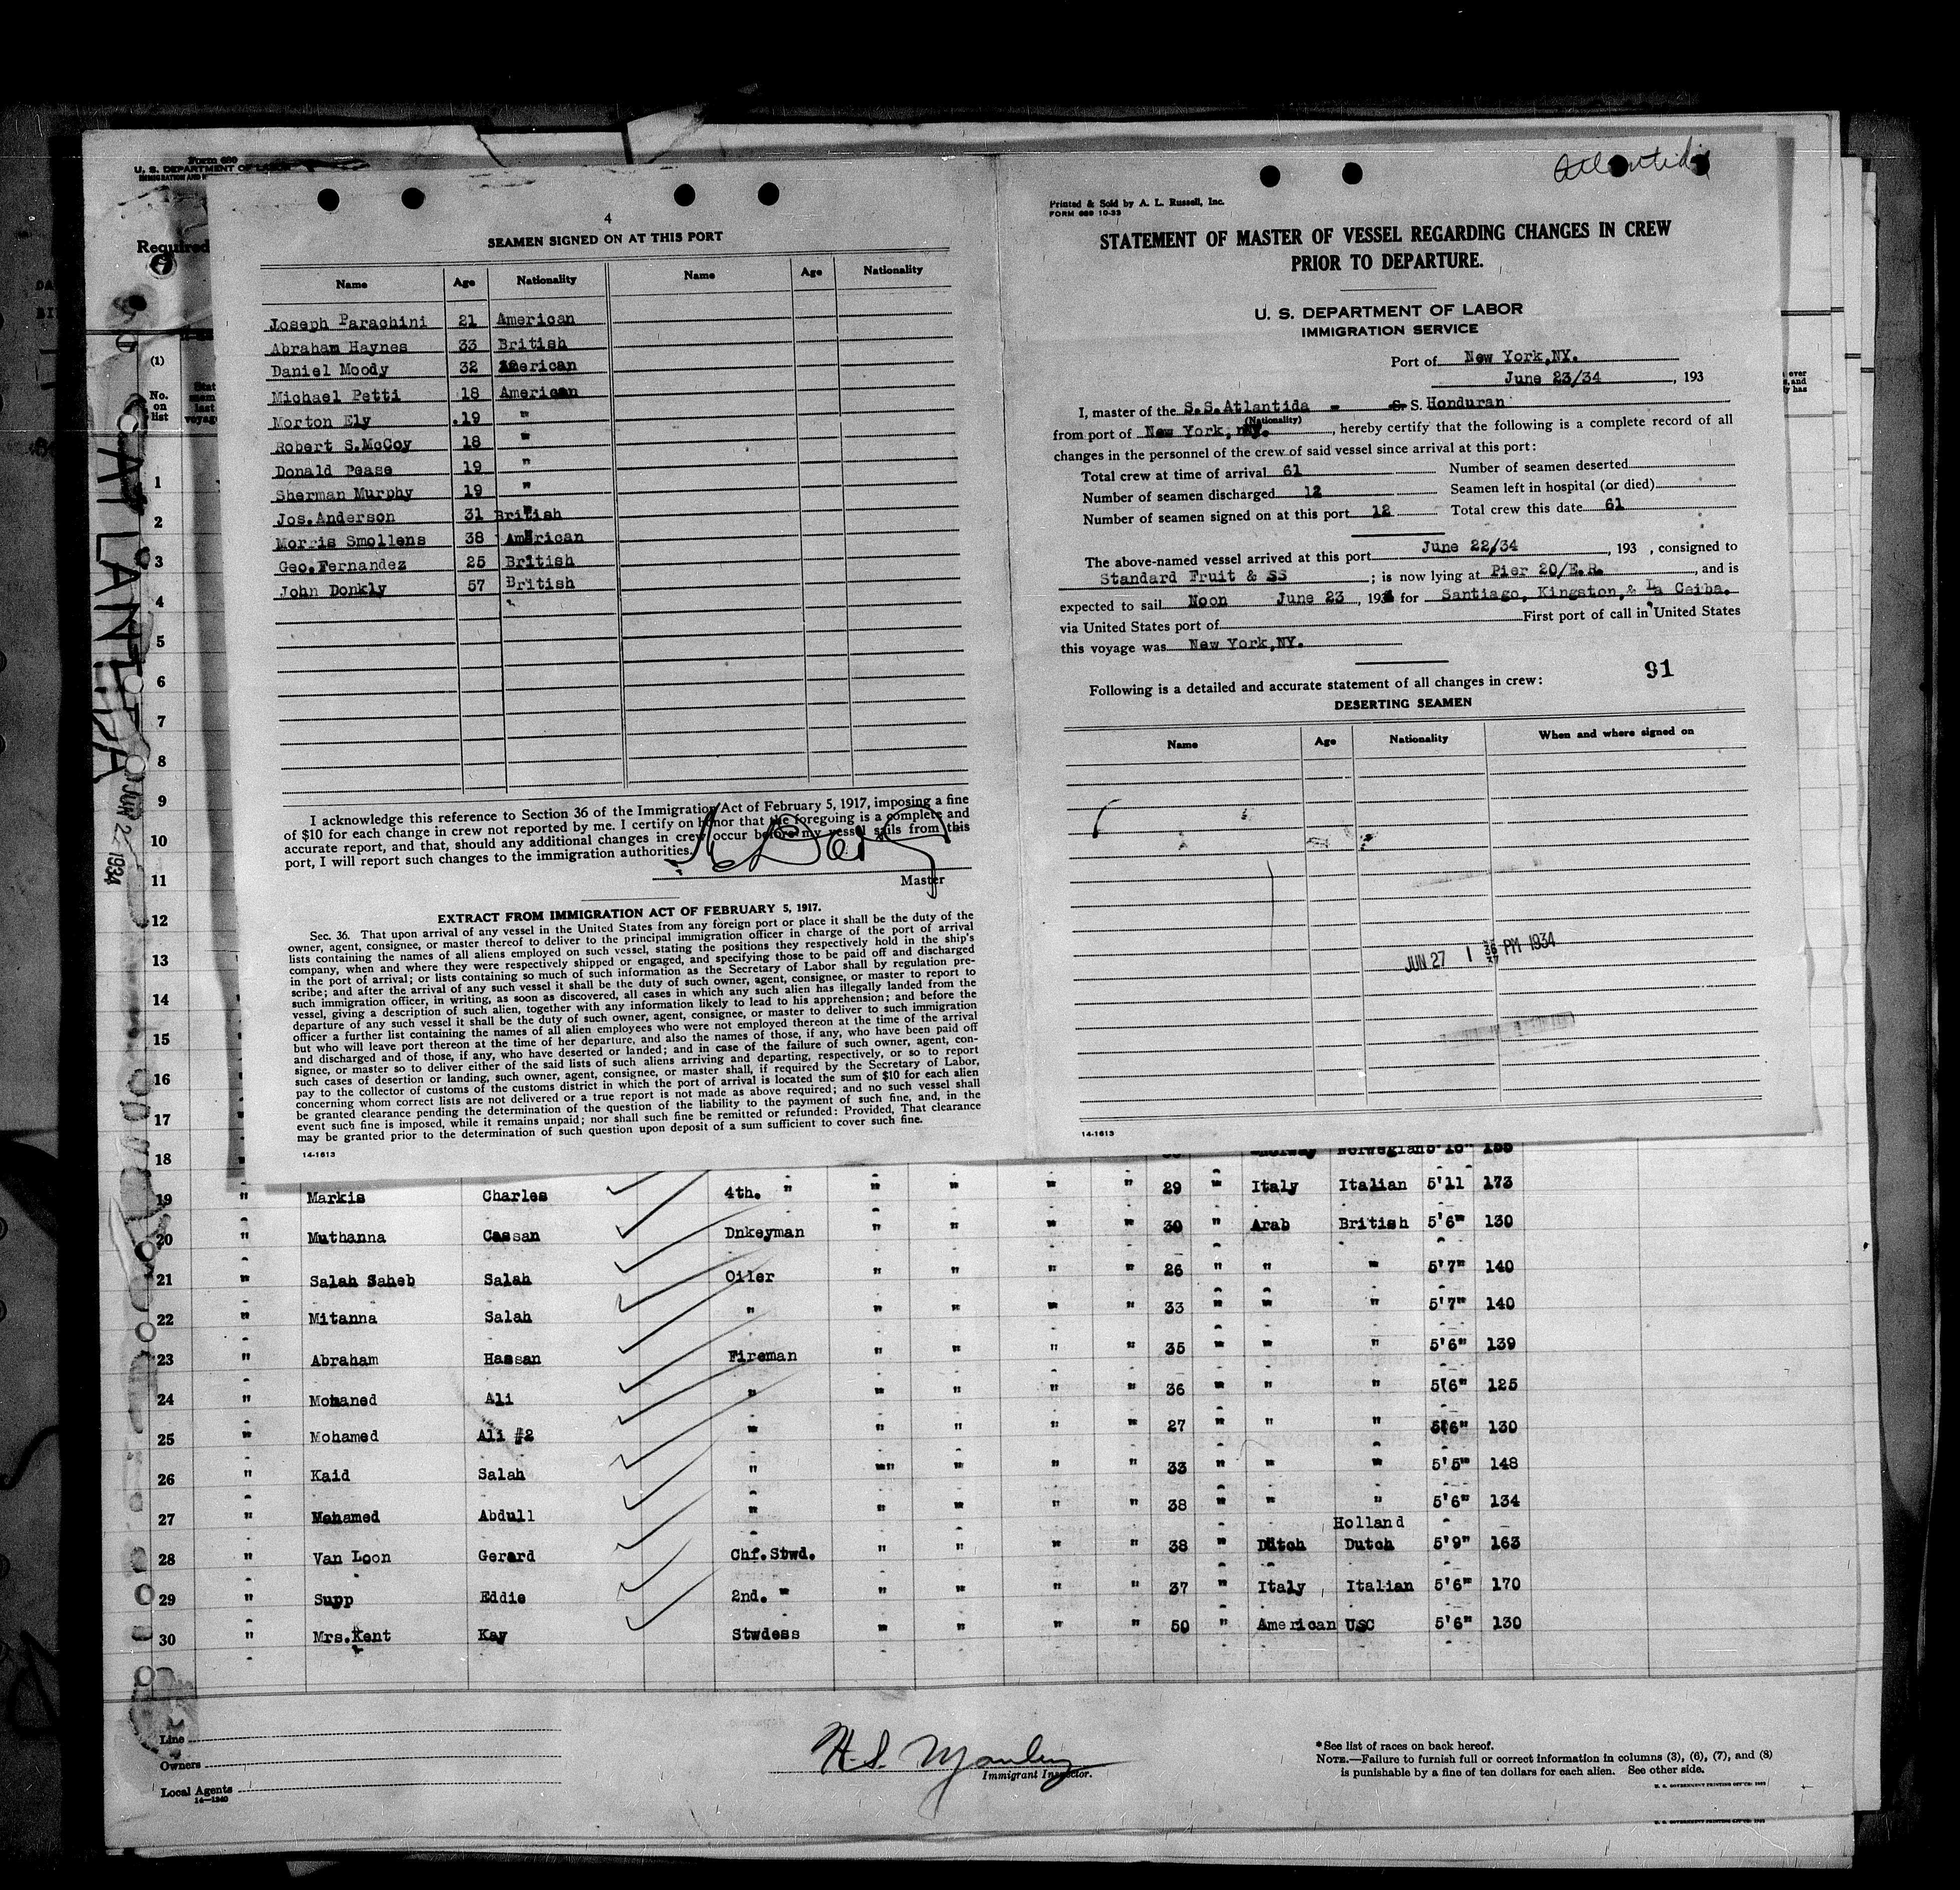 Form 689
U. S. DEPARTMENT OF LABOR
Required
(1)
No.
on
list
ATLANTIDA
JUN 22 1934
4
SEAMEN SIGNED ON AT THIS PORT
Name Age Nationality Name Age Nationality
Joseph Parachini 21 American
Abraham Haynes 33 British
Daniel Moody 32 American
Michael Petti 18 American
Morton Ely .19 "
Robert S.McCoy 18 "
Donald Pease 19 "
Sherman Murphy 19 "
Jos.Anderson 31 British
Morris Smollens 38 American
Geo.Fernandez 25 British
John Donkly 57 British
I acknowledge this reference to Section 36 of the Immigration Act of February 5, 1917, imposing a fine
of $10 for each change in crew not reported by me. I certify on honor that the foregoing is a complete and
accurate report, and that, should any additional changes in crew occur before my vessel sails from this
port, I will report such changes to the immigration authorities.
Master
EXTRACT FROM IMMIGRATION ACT OF FEBRUARY 5, 1917.
Sec. 36. That upon arrival of any vessel in the United States from any foreign port or place it shall be the duty of the
owner, agent, consignee, or master thereof to deliver to the principal immigration officer in charge of the port of arrival
lists containing the names of all aliens employed on such vessel, stating the positions they respectively hold in the ship's
company, when and where they were respectively shipped or engaged, and specifying those to be paid off and discharged
in the port of arrival; or lists containing so much of such information as the Secretary of Labor shall by regulation pre-
scribe; and after the arrival of any such vessel it shall be the duty of such owner, agent, consignee, or master to report to
such immigration officer, in writing, as soon as discovered, all cases in which any such alien has illegally landed from the
vessel, giving a description of such alien, together with any information likely to lead to his apprehension; and before the
departure of any such vessel it shall be the duty of such owner, agent, consignee, or master to deliver to such immigration
officer a further list containing the names of all alien employees who were not employed thereon at the time of the arrival
but who will leave port thereon at the time of her departure, and also the names of those, if any, who have been paid off
and discharged and of those, if any, who have deserted or landed; and in case of the failure of such owner, agent, con-
signee, or master so to deliver either of the said lists of such aliens arriving and departing, respectively, or so to report
such cases of desertion or landing, such owner, agent, consignee, or master shall, if required by the Secretary of Labor,
pay to the collector of customs of the customs district in which the port of arrival is located the sum of $10 for each alien
concerning whom correct lists are not delivered or a true report is not made as above required; and no such vessel shall
be granted clearance pending the determination of the question of the liability to the payment of such fine, and, in the
event such fine is imposed, while it remains unpaid; nor shall such fine be remitted or refunded: Provided, That clearance
may be granted prior to the determination of such question upon deposit of a sum sufficient to cover such fine.
14-1613
Atlantida
Printed & Sold by A. L. Russell, Inc.
FORM 689 10-33
STATEMENT OF MASTER OF VESSEL REGARDING CHANGES IN CREW
PRIOR TO DEPARTURE.
U. S. DEPARTMENT OF LABOR
IMMIGRATION SERVICE
Port of New York,NY.
June 23/34 , 193
I, master of the S.S.Atlantida - S. S. Honduran
(Nationality)
from port of New York, NY. , hereby certify that the following is a complete record of all
changes in the personnel of the crew of said vessel since arrival at this port:
Total crew at time of arrival 61 Number of seamen deserted
Number of seamen discharged 12 Seamen left in hospital (or died)
Number of seamen signed on at this port 12 Total crew this date 61
The above-named vessel arrived at this port June 22/34 , 193 , consigned to
Standard Fruit & SS ; is now lying at Pier 20/E.R. , and is
expected to sail Noon June 23 , 193 for Santiago, Kingston,& La Ceiba.
via United States port of First port of call in United States
this voyage was New York,NY.
91
Following is a detailed and accurate statement of all changes in crew:
DESERTING SEAMEN
Name Age Nationality When and where signed on
JUN 27 1 36 PM 1934
14-1613
1
2
3
4
5
6
7
8
9
10
11
12
13
14
15
16
17
18 Norway Norwegian
19 " Markis Charles 4th. " " " " " 29 " Italy Italian 5'11 173
20 " Muthanna Cassan Dnkeyman " " " " 30 " Arab British 5'6" 130
21 " Salah Saheb Salah Oiler " " " " 26 " " " 5'7" 140
22 " Mitanna Salah " " " " " 33 " " " 5'7" 140
23 " Abraham Hassan Fireman " " " " 35 " " " 5'6" 139
24 " Mohaned Ali " " " " " 36 " " " 5'6" 125
25 " Mohamed Ali #2 " " " " " 27 " " " 5'6" 130
26 " Kaid Salah " " " " " 33 " " " 5'5" 148
27 " Mohamed Abdull " " " " " 38 " " " 5'6" 134
Holland
28 " Van Loon Gerard Chf.Stwd. " " " " 38 " Dutch Dutch 5'9" 163
29 " Supp Eddie 2nd. " " " " " 37 " Italy Italian 5'6" 170
30 " Mrs.Kent Kay Stwdess " " " " 50 " American USC 5'6" 130
Line
Owners
Local Agents
14-1240
H. S. Manley
Immigrant Inspector.
*See list of races on back hereof.
NOTE.—Failure to furnish full or correct information in columns (3), (6), (7), and (8)
is punishable by a fine of ten dollars for each alien. See other side.